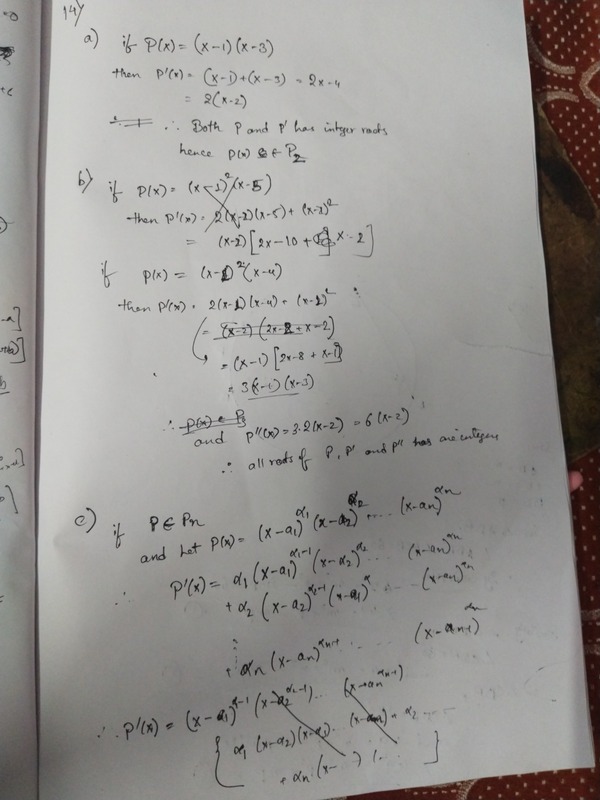 14)
a) if P(x) = (x-1)(x-3)
then P'(x) = (x-1)+(x-3) = 2x-4
= 2(x-2)
∴ Both P and P' has integer roots
hence P(x) ∈ P₂
b) if P(x) = (x-1)²(x-5)
then P'(x) = 2(x-2)(x-5) + (x-2)²
= (x-2)[2x-10 + x-2]
if P(x) = (x-1)²(x-4)
then P'(x) = 2(x-1)(x-4) + (x-1)²
= (x-2)(2x-8+x-2)
= (x-1)[2x-8 + x-1]
= 3(x-1)(x-3)
∴ P(x) ∈ P₃
and P''(x) = 3·2(x-2) = 6(x-2)
∴ all roots of P, P' and P'' has are integers
c) if P ∈ Pn
and Let P(x) = (x-a₁)^α₁ (x-a₂)^α₂ .... (x-an)^αn
∴ P'(x) = α₁(x-a₁)^α₁-1 (x-a₂)^α₂ ... (x-an)^αn
+ α₂(x-a₂)^α₂-1 (x-a₁)^α₁ (x-an)^αn
⋮
+ αn(x-an)^αn-1 ... (x-an-1)^αn
∴ P'(x) = (x-a₁)^α₁-1 (x-a₂^α₂-1) ... (x-an^αn-1)
{ α₁(x-a₂)(x-a₃) ... (x-an) + α₂ ...
+ αn (x- ) ( ... }